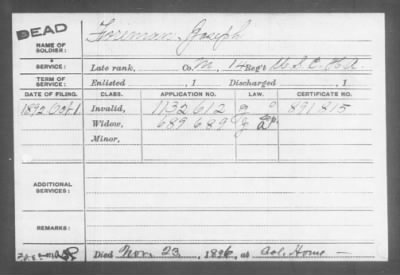 DEAD
NAME OF SOLDIER: Foreman, Joseph
SERVICE: Late rank, Co. M, 14 Reg't U.S.C.H.A.
TERM OF SERVICE: Enlisted , 1 Discharged , 1
DATE OF FILING. CLASS. APPLICATION NO. LAW. CERTIFICATE NO.
1892 Oct 1 Invalid, 1132 612 g 891815
Widow, 689 689 g
Minor,
ADDITIONAL SERVICES:
REMARKS:
Died Nov. 23, 1896, at Home —